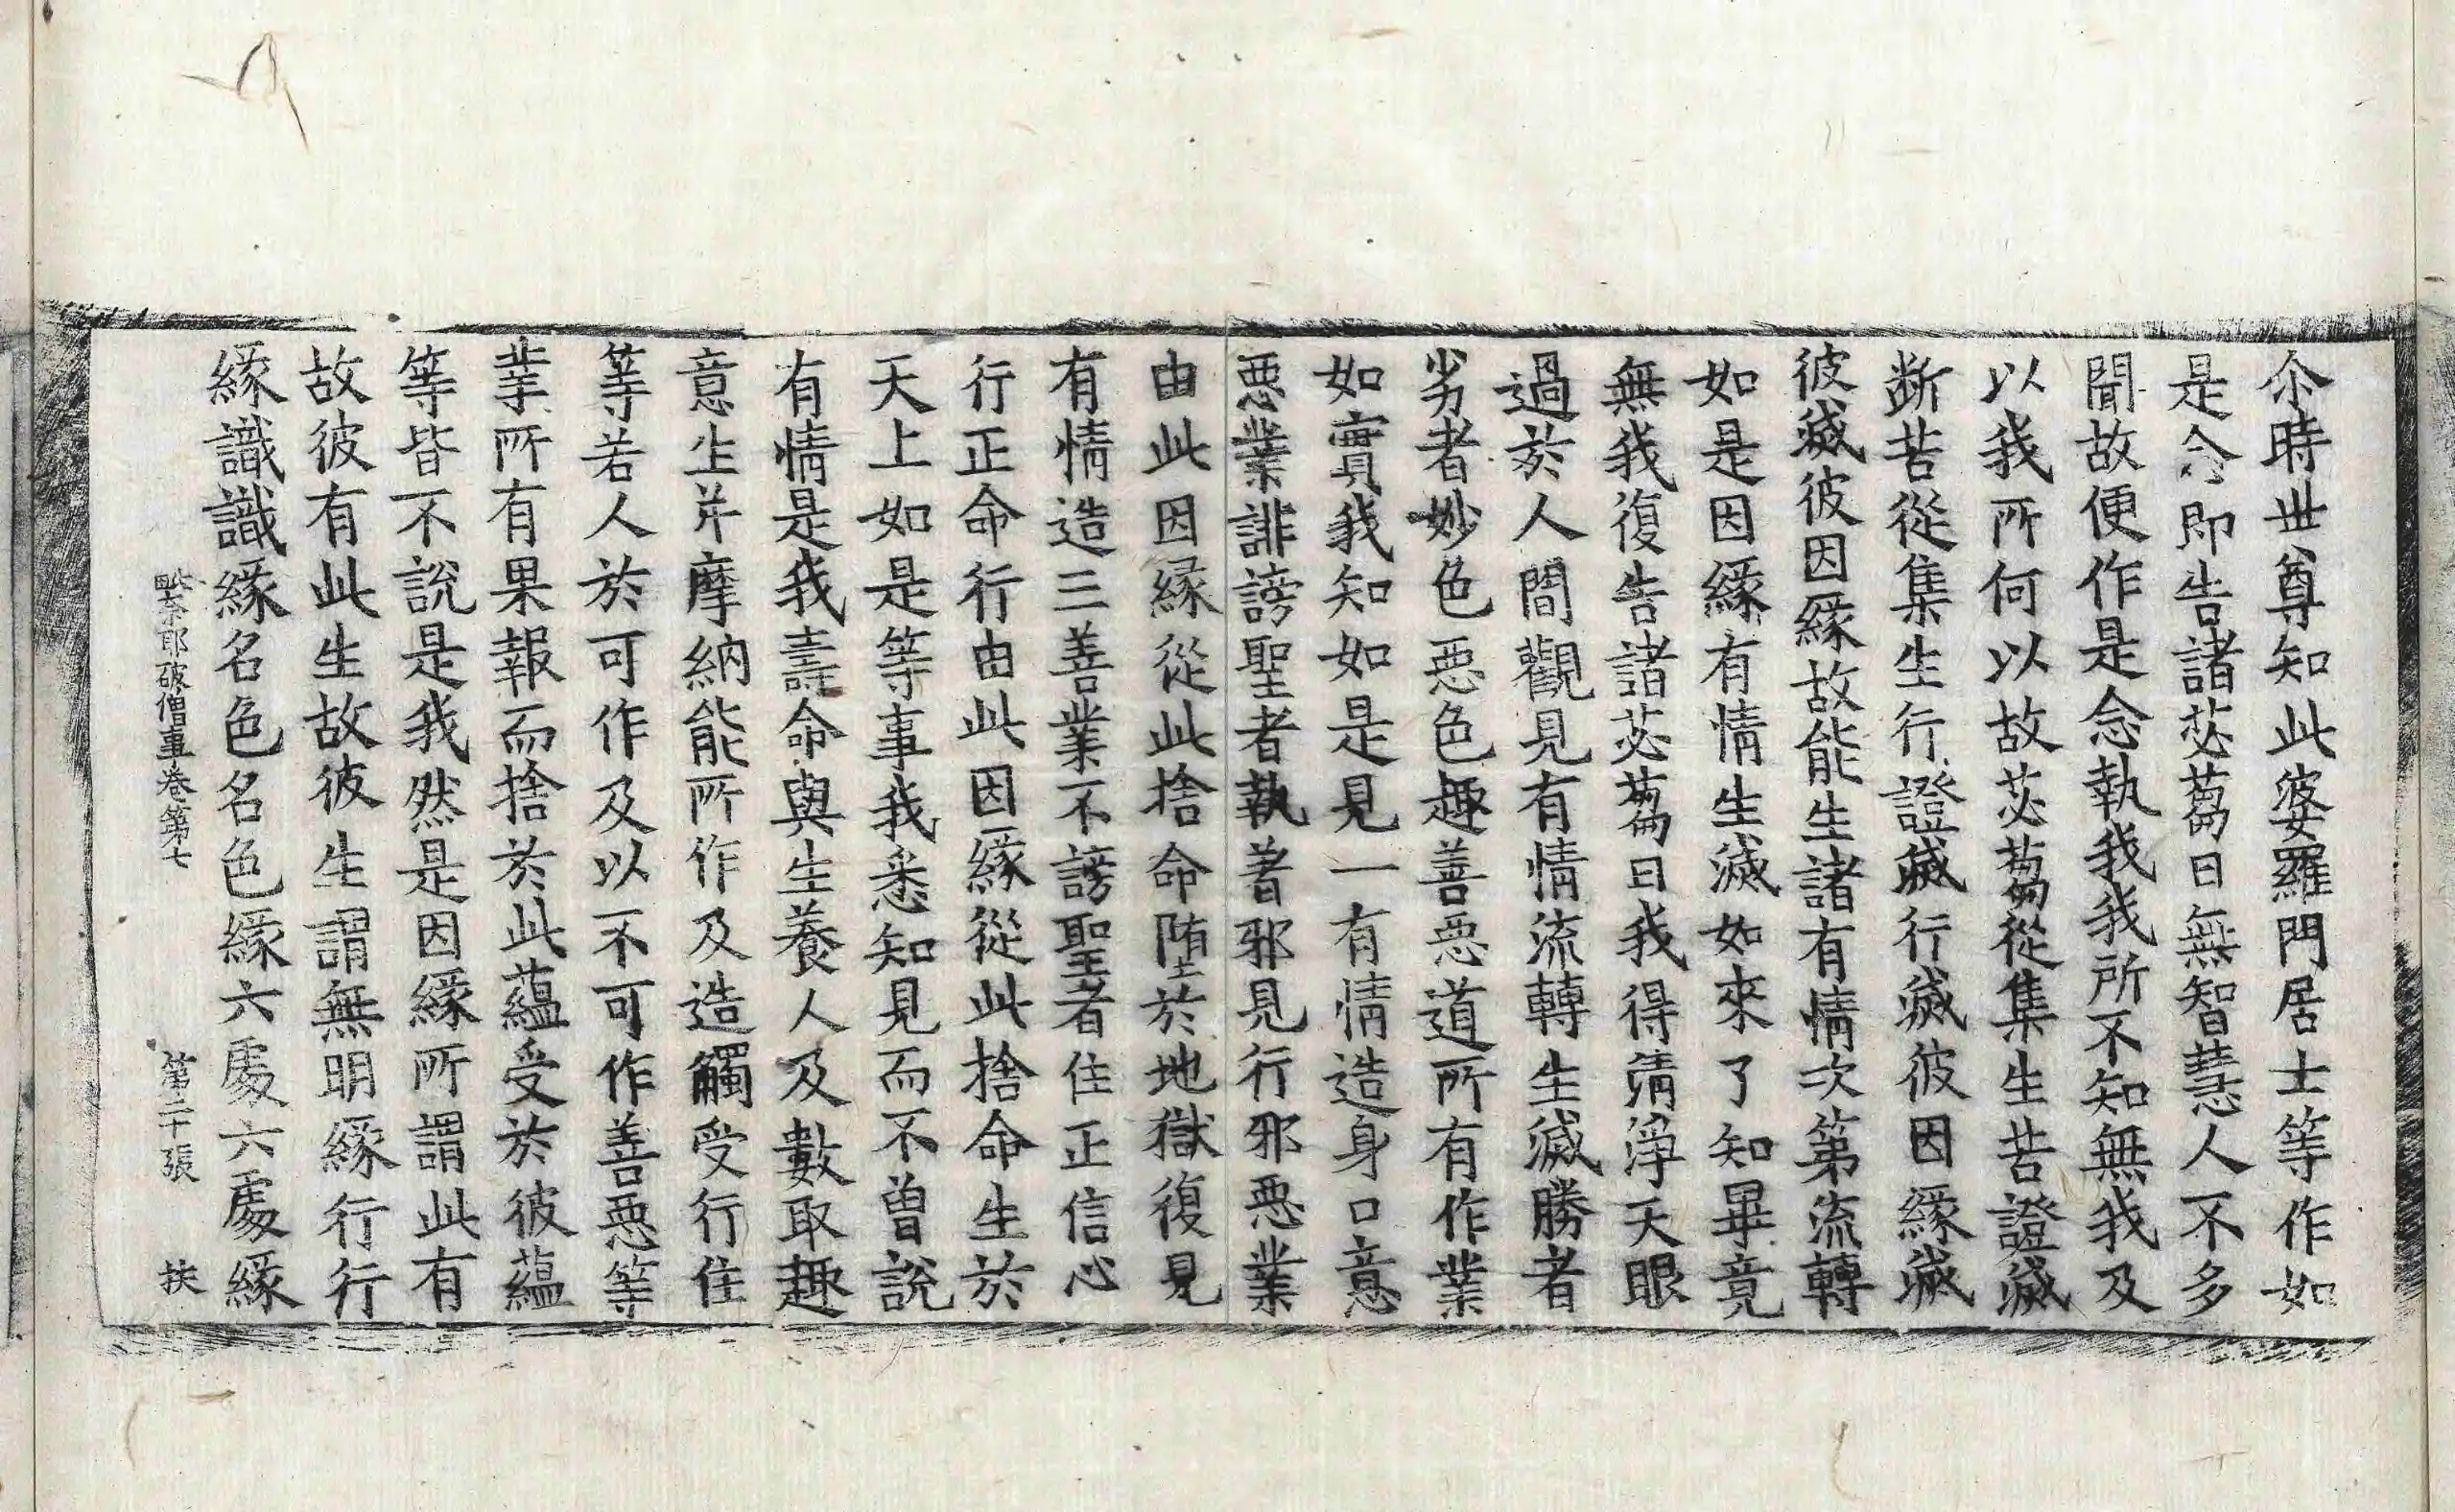 尒時世尊知此婆羅門居士等作如
是念即告諸苾蒭曰無智慧人不多
聞故便作是念執我我所不知無我及
以我所何以故苾蒭從集生苦證滅
断苦從集生行證滅行滅彼因緣滅
彼滅彼因緣故能生諸有情次第流轉
如是因緣有情生滅如來了知畢竟
無我復告諸苾蒭曰我得清淨天眼
過於人間觀見有情流轉生滅勝者
劣者妙色惡色趣善惡道所有作業
如實我知如是見一有情造身口意
惡業誹謗聖者執著邪見行邪惡業
由此因縁從此捨命墮於地獄復見
有情造三善業不謗聖者住正信心
行正命行由此因緣從此捨命生於
天上如是等事我悉知見而不曽說
有情是我壽命與生養人及數取趣
意生并摩納能所作及造觸受行住
等若人於可作及以不可作善惡等
業所有果報而捨於此蘊受於彼蘊
等皆不說是我然是因緣所謂此有
故彼有此生故彼生謂無明緣行行
緣識識緣名色名色緣六處六處緣
毗奈耶破僧事卷第七　第二十張　扶